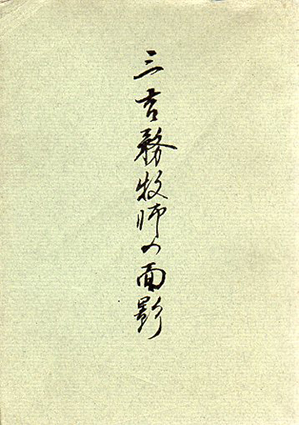 三吉務牧師の面影